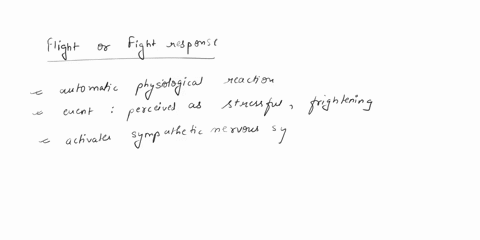 Flight or Fight response
automatic physiological reaction
event : perceives as stressful, frightening
activates sympathetic nervous sy